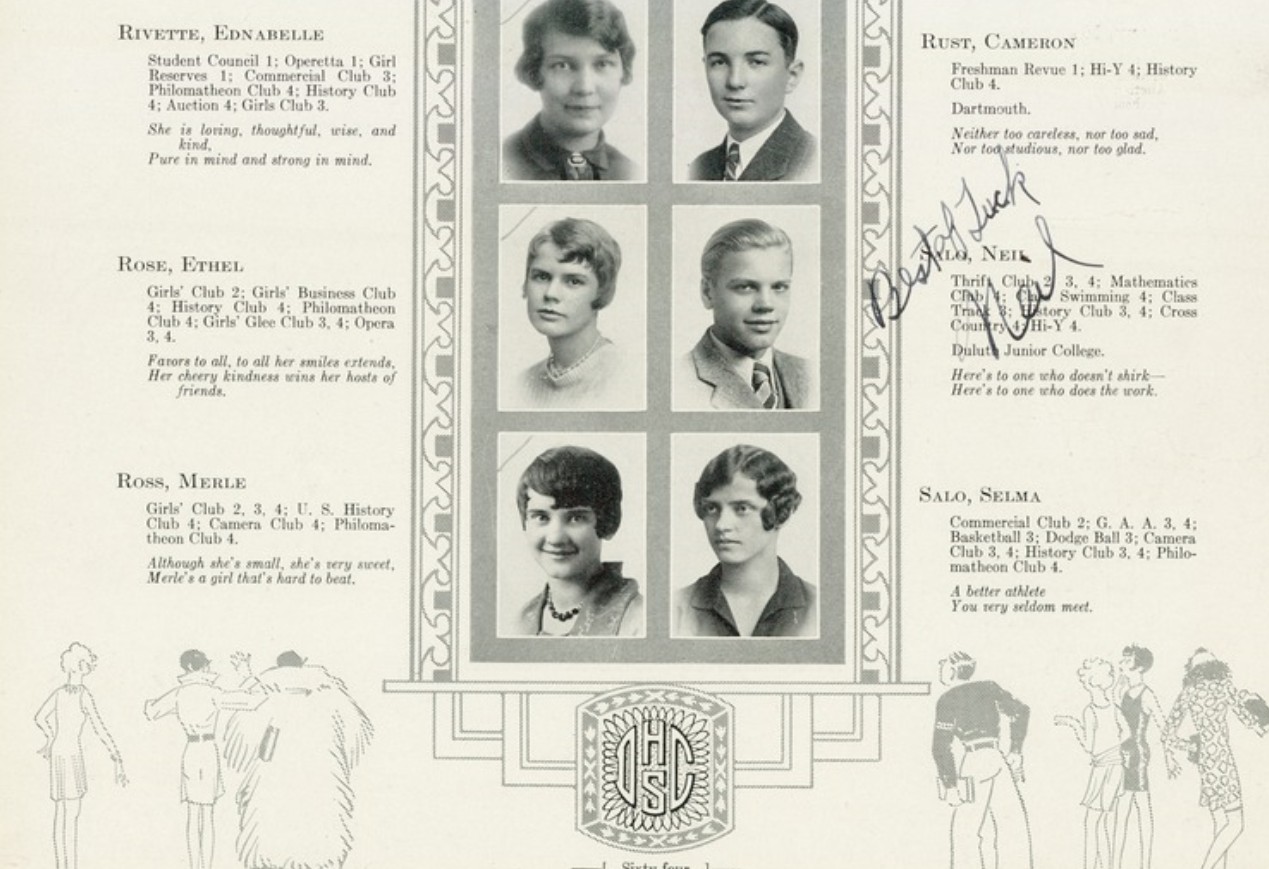 RIVETTE, EDNABELLE
Student Council 1; Operetta 1; Girl
Reserves 1; Commercial Club 3;
Philomatheon Club 4; History Club
4; Auction 4; Girls Club 3.
She is loving, thoughtful, wise, and
kind,
Pure in mind and strong in mind.
ROSE, ETHEL
Girls' Club 2; Girls' Business Club
4; History Club 4; Philomatheon
Club 4; Girls' Glee Club 3, 4; Opera
3, 4.
Favors to all, to all her smiles extends,
Her cheery kindness wins her hosts of
friends.
ROSS, MERLE
Girls' Club 2, 3, 4; U. S. History
Club 4; Camera Club 4; Philoma-
theon Club 4.
Although she's small, she's very sweet,
Merle's a girl that's hard to beat.
RUST, CAMERON
Freshman Revue 1; Hi-Y 4; History
Club 4.
Dartmouth.
Neither too careless, nor too sad,
Nor too studious, nor too glad.
Best of Luck
Neil
SALO, NEIL
Thrift Club 2, 3, 4; Mathematics
Club 4; Class Swimming 4; Class
Track 3; History Club 3, 4; Cross
Country 4; Hi-Y 4.
Duluth Junior College.
Here's to one who doesn't shirk—
Here's to one who does the work.
SALO, SELMA
Commercial Club 2; G. A. A. 3, 4;
Basketball 3; Dodge Ball 3; Camera
Club 3, 4; History Club 3, 4; Philo-
matheon Club 4.
A better athlete
You very seldom meet.
DHSC
[ Sixty-four ]